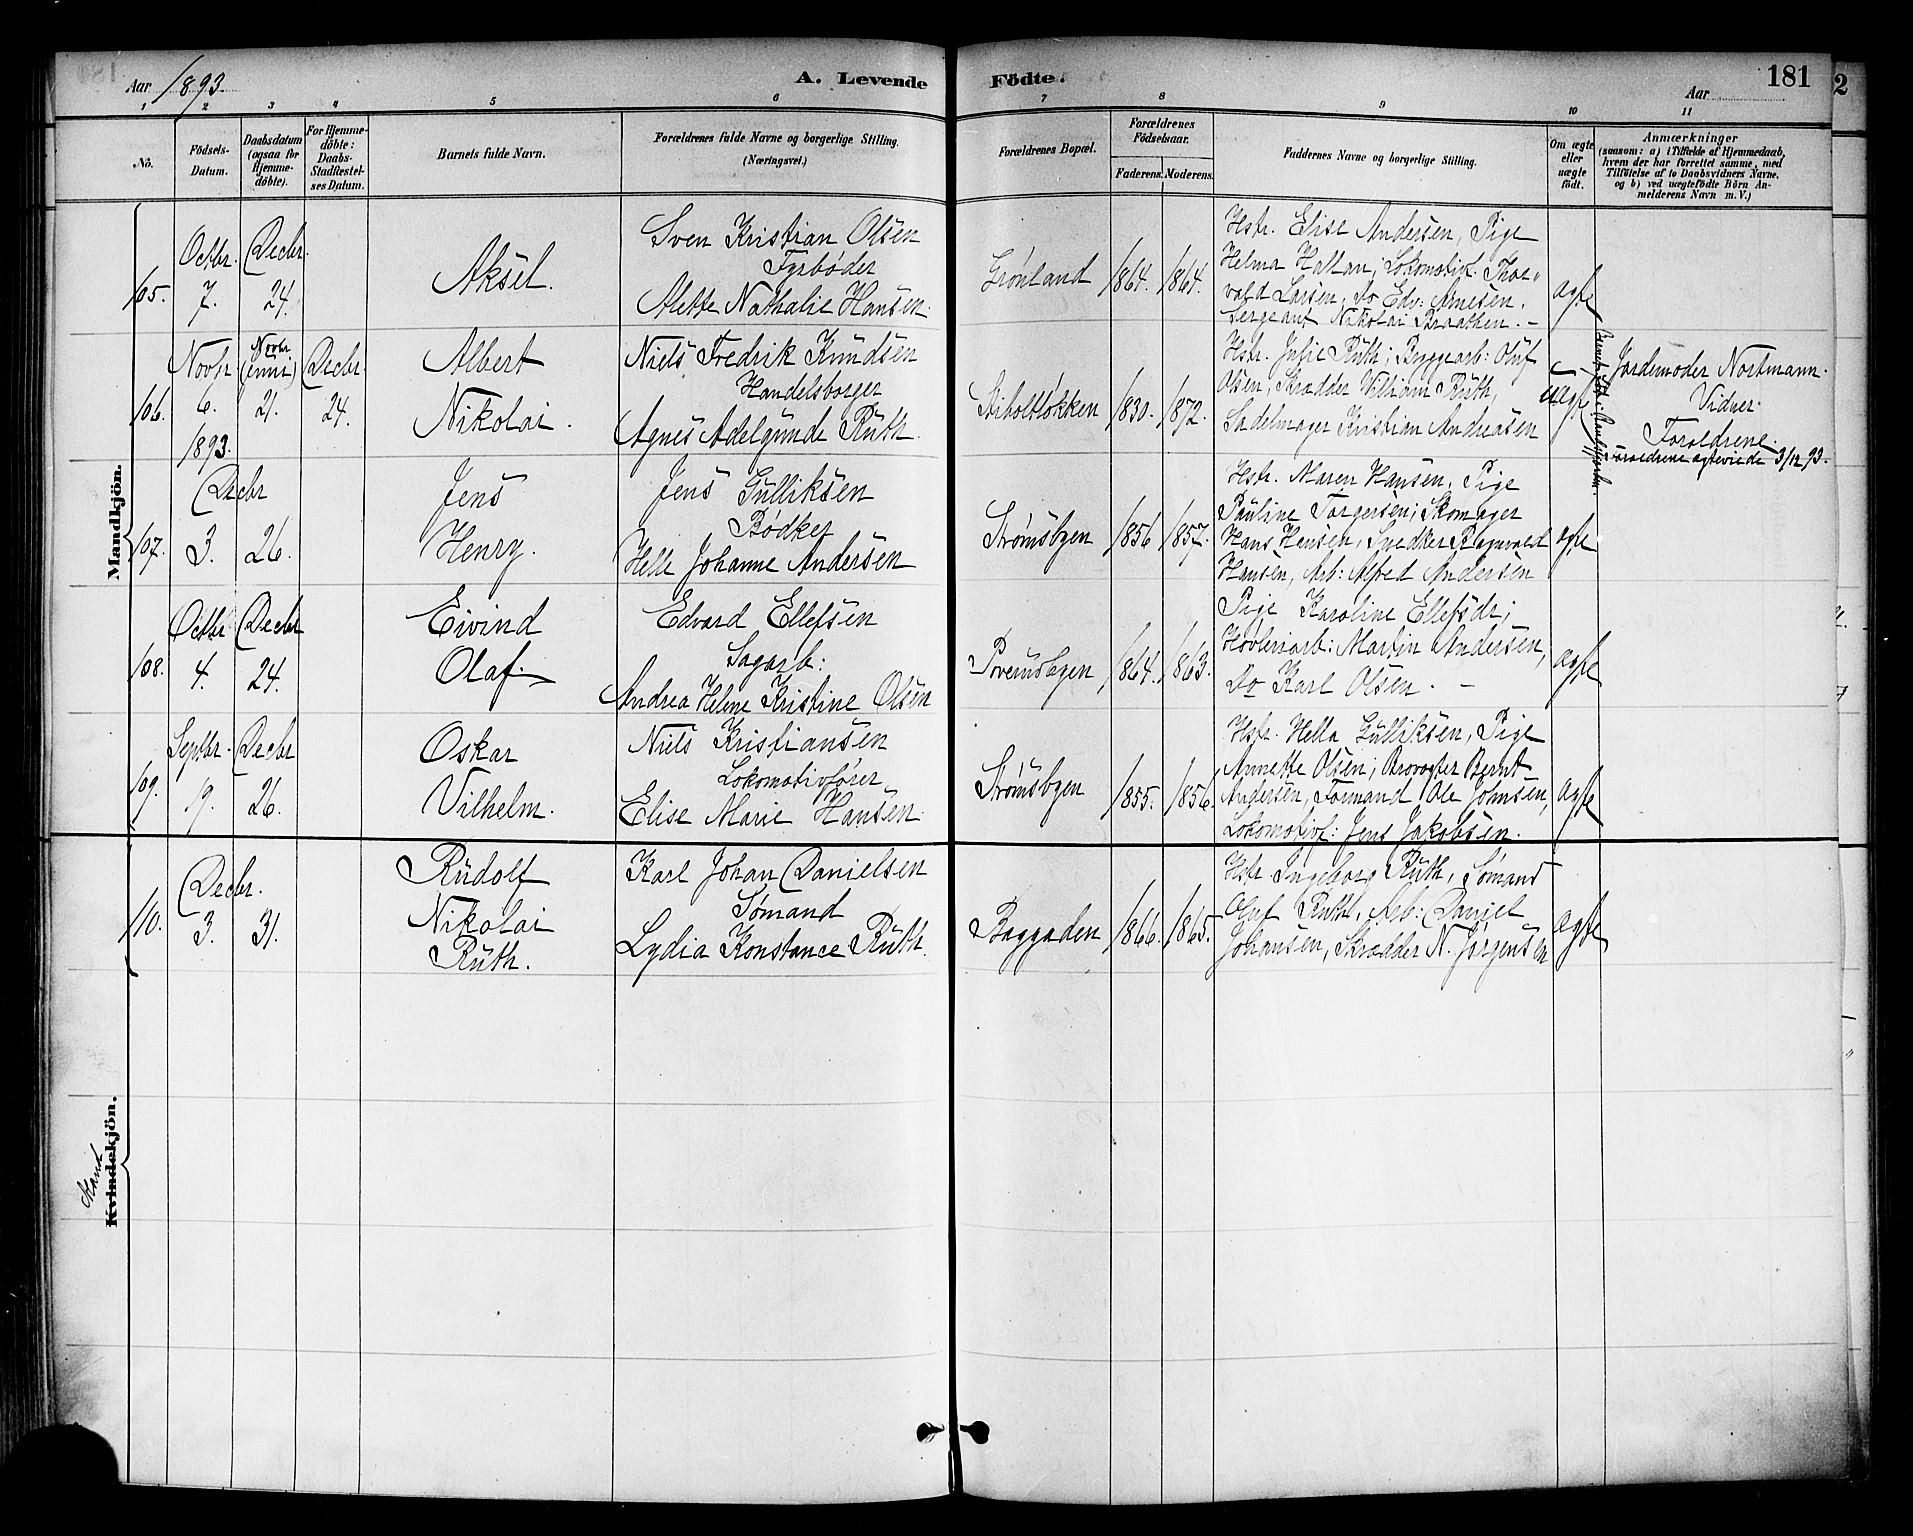 Aar 1893. A. Levende Födte. Aar 181
1 2 3 4 5 6 7 8 9 10 11
Nö.
Födsels-Datum.
Daabsdatum (ogsaa for Hjemmedöbte).
For Hjemmedöbte: Daabs-Stadfæstelses Datum.
Barnets fulde Navn.
Forældrenes fulde Navne og borgerlige Stilling.
(Næringsvei.)
Forældrenes Bopæl.
Forældrenes Födselsaar.
Faderens. Moderens.
Faddernes Navne og borgerlige Stilling.
Om ægte eller uægte födt.
Anmærkninger
(saasom: a) i Tilfælde af Hjemmedaab,
hvem der har forrettet samme, med
Tilföielse af to Daabsvidners Navne.
og b) ved uægtefödte Börn An-
melderens Navn m. V.)
Mandkjön.
105.
Octbr. 7.
Decbr. 24.
Aksel.
Sven Kristian Olsen
Fyrbøder
Alette Nathalie Hansen.
Grønland
1864. 1864.
Hstr. Elise Andersen, Pige
Helma Hallan; Lokomotik. Thor„
vald Larsen, Do Edv: Arnesen,
Sergeant Nikolai Braathen. –
ægte
106.
Novbr 6. 1893.
Novbr 21.
Decbr. 24.
Albert
Nikolai.
Niels Fredrik Knudsen
Handelsborger
Agnes Adelgunde Ruth.
1830. 1872.
Hstr. Julie Ruth; Byggearb: Oluf
Olsen, Skrædder Villiam Ruth,
Sadelmager Kristian Andreasen
uægte
Jordemoder Nortmann.
Vidner
Forældrene.
Forældrene ægteviede 3/12 93.
107.
Decbr 3.
26.
Jens
Henry.
Jens Gulliksen
Bødker
Helle Johanne Andersen
Strømsbyen
1856 1857.
Hstr. Maren Hansen, Pige
Pauline Torgersen; Skomager
Hans Hensen, Snedker Ragnvald
Hansen, Arb: Alfred Andersen
ægte
108.
Octbr 4.
Decbr 24.
Eivind
Olaf.
Edvard Ellefsen
Sagarb:
Andrea Helene Kristine Olsen
1864. 1863.
Pige Karoline Ellefsdr;
Høvleriarb: Martin Andersen,
Do Karl Olsen. –
ægte
109.
Septbr. 19.
Decbr 26.
Oskar
Vilhelm.
Niels Kristiansen
Lokomotivfører
Elise Marie Hansen.
Strømsbyen
1855. 1856.
Hstr. Hella Gulliksen, Pige
Annette Olsen; Brovogter Bernt
Andersen, Formand Ole Johnsen,
Lokomotivf: Jens Jakobsen.
ægte
110.
Decbr. 3.
31.
Rudolf
Nikolai
Ruth.
Karl Johan Danielsen
Sømand
Lydia Konstance Ruth.
Baggaden
1866. 1865.
Hstr. Ingeborg Ruth, Sømand
Oluf Ruth, Arb: Daniel
Johansen, Skrædder N. Jørgensen
ægte
Mand
Kvindekjön.
2